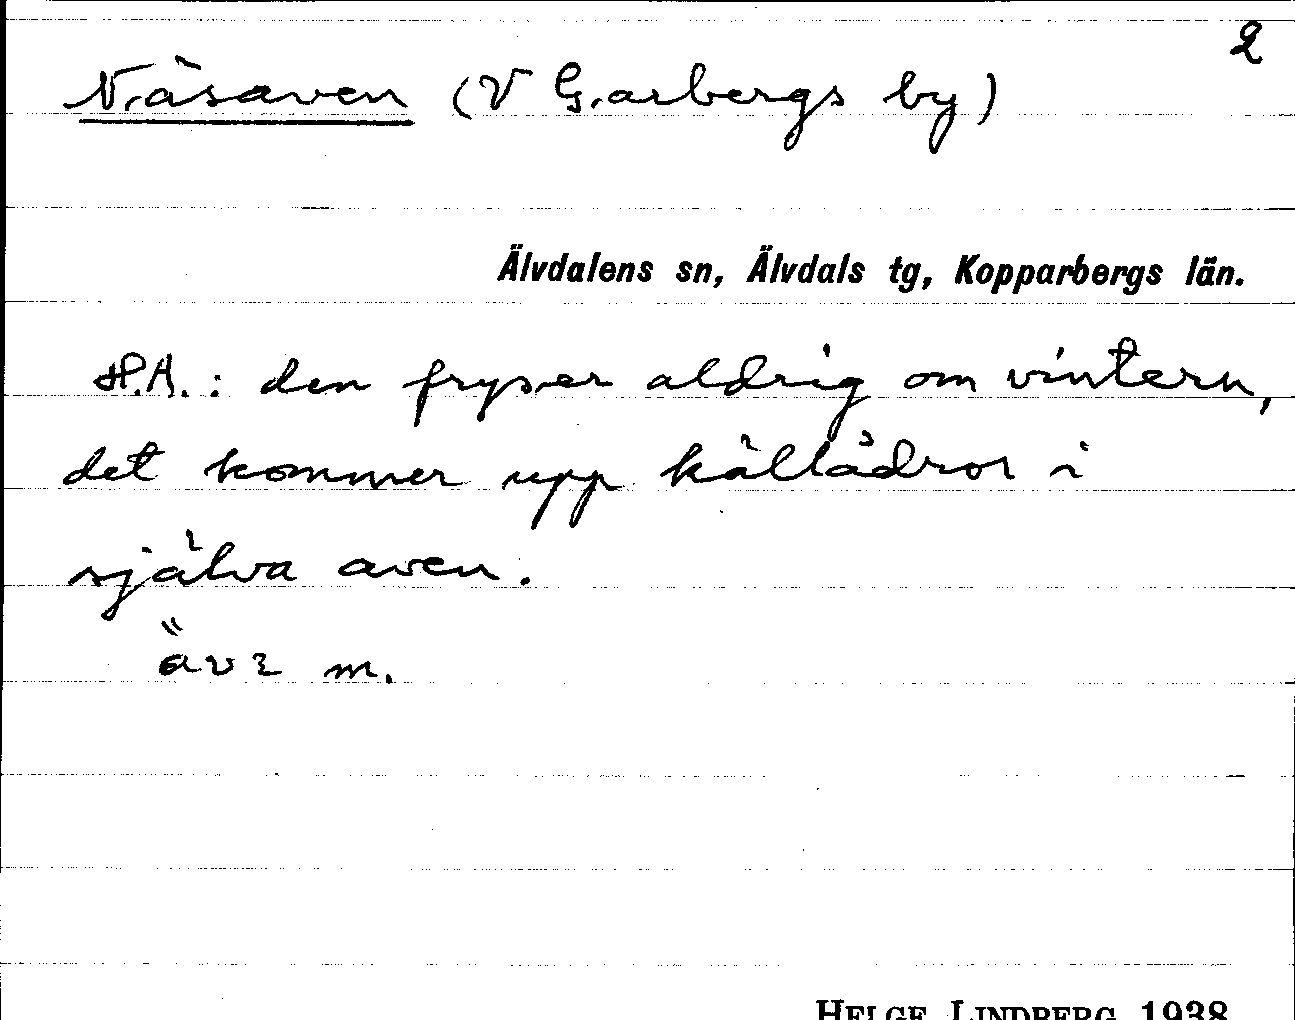 2
Näsaven (V Garbergs by)
Älvdalens sn, Älvdals tg, Kopparbergs län.
H.A.: den fryser aldrig om vintern,
det kommer upp källådror i
själva aven.
m.
HELGE LINDBERG 1938